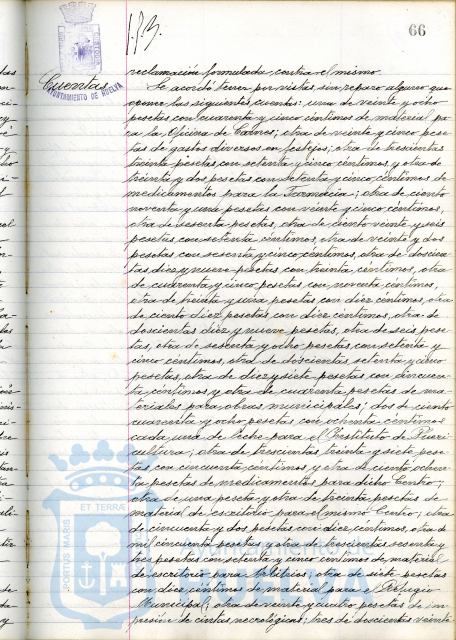 66
Cuentas
AYUNTAMIENTO DE HUELVA
reclamación formulada contra el mismo.
Se acordó tener por vistas sin reparo alguno que
oponer las siguientes cuentas: una de veinte y ocho
pesetas con cuarenta y cinco céntimos de material pa-
ra la Oficina de Valores; otra de veinte y cinco pese-
tas de gastos diversos en festejos; otra de trescientas
treinta pesetas con setenta y cinco céntimos y otra de
treinta y dos pesetas con setenta y cinco céntimos de
medicamentos para la Farmacia; otra de ciento
noventa y una pesetas con veinte y cinco céntimos,
otra de sesenta pesetas, otra de ciento veinte y seis
pesetas con setenta céntimos, otra de veinte y dos
pesetas con sesenta y cinco céntimos, otra de doscien-
tas diez y nueve pesetas con treinta céntimos, otra
de cuarenta y cinco pesetas con noventa céntimos,
otra de treinta y una pesetas con diez céntimos, otra
de ciento diez pesetas con diez céntimos, otra de
doscientas diez y nueve pesetas, otra de seis pese-
tas, otra de sesenta y ocho pesetas con setenta y
cinco céntimos, otra de doscientas setenta y cinco
pesetas, otra de diez y siete pesetas con cincuen-
ta céntimos y otra de cuarenta pesetas de ma-
teriales para obras municipales; dos de ciento
cuarenta y ocho pesetas con ochenta céntimos
cada una de leche para el Instituto de Pueri-
cultura; otra de trescientas treinta y siete pese-
tas con cincuenta céntimos y otra de ciento ochen-
ta pesetas de medicamentos para dicho Centro;
otra de una peseta y otra de treinta pesetas de
material de escritorio para el mismo Centro; otra
de cincuenta y dos pesetas con diez céntimos, otra de
mil cincuenta pesetas y otra de trescientas sesenta y
tres pesetas con setenta y cinco céntimos de material
de escritorio para Arbitrios; otra de siete pesetas
con doce céntimos de material para el Refugio
Municipal; otra de veinte y cuatro pesetas de im-
presión de cintas necrológicas; tres de doscientas veinte
PORTUS MARIS
ET TERRÆ
Ayuntamiento de
HUELVA